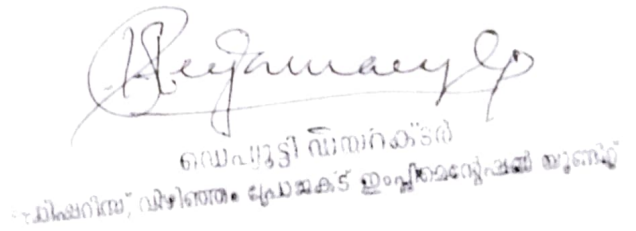 ഡെപ്യൂട്ടി ഡയറക്ടർ
ഫിഷറീസ്, വിഴിഞ്ഞം പ്രോജക്ട് ഇംപ്ലിമെന്റേഷൻ യൂണിറ്റ്